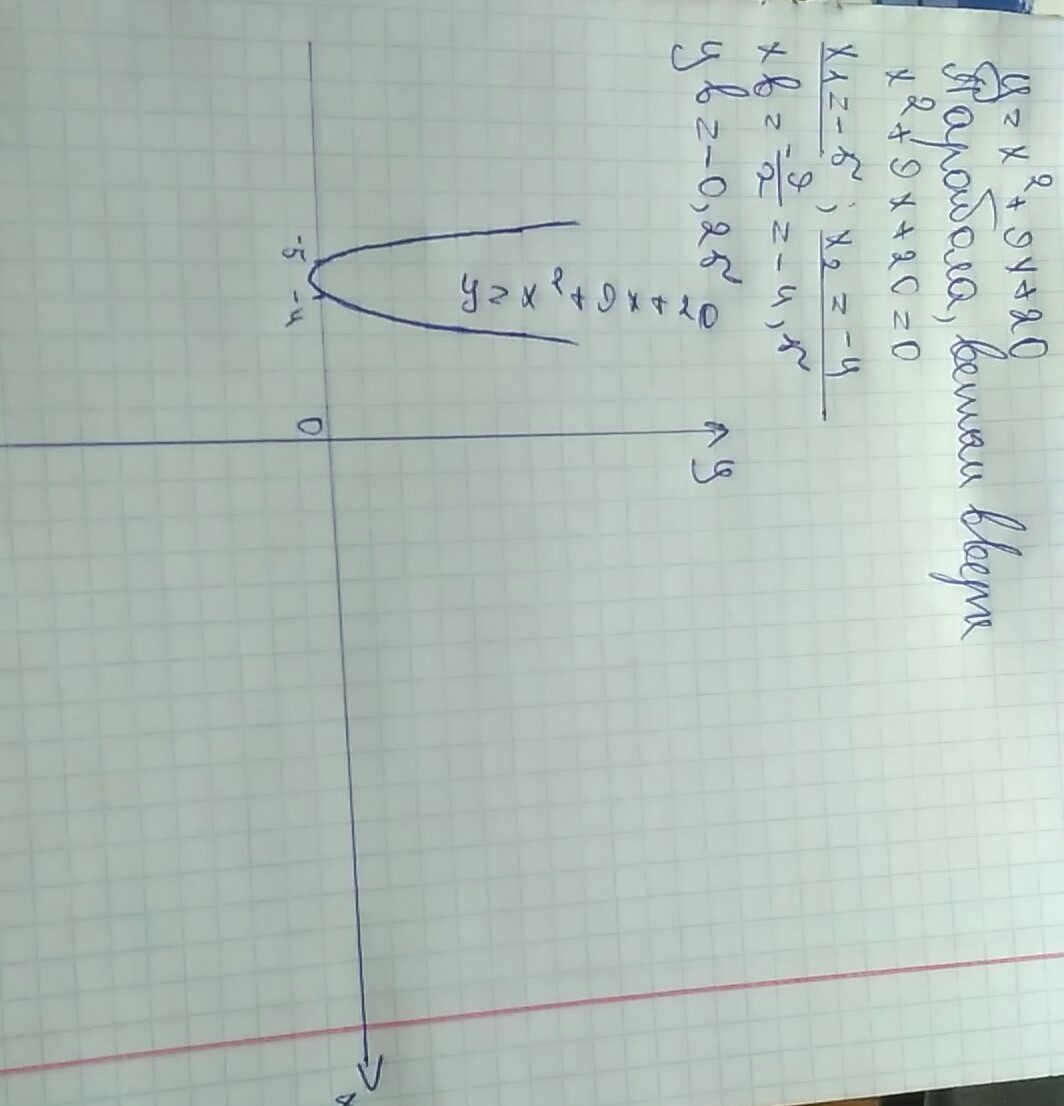 y = x² + 9x + 20
Парабола, ветви вверх
x² + 9x + 20 = 0
x1 = -5; x2 = -4
xв = -9/2 = -4,5
yв = -0,25
y
y = x² + 9x + 20
-5
-4
0
x